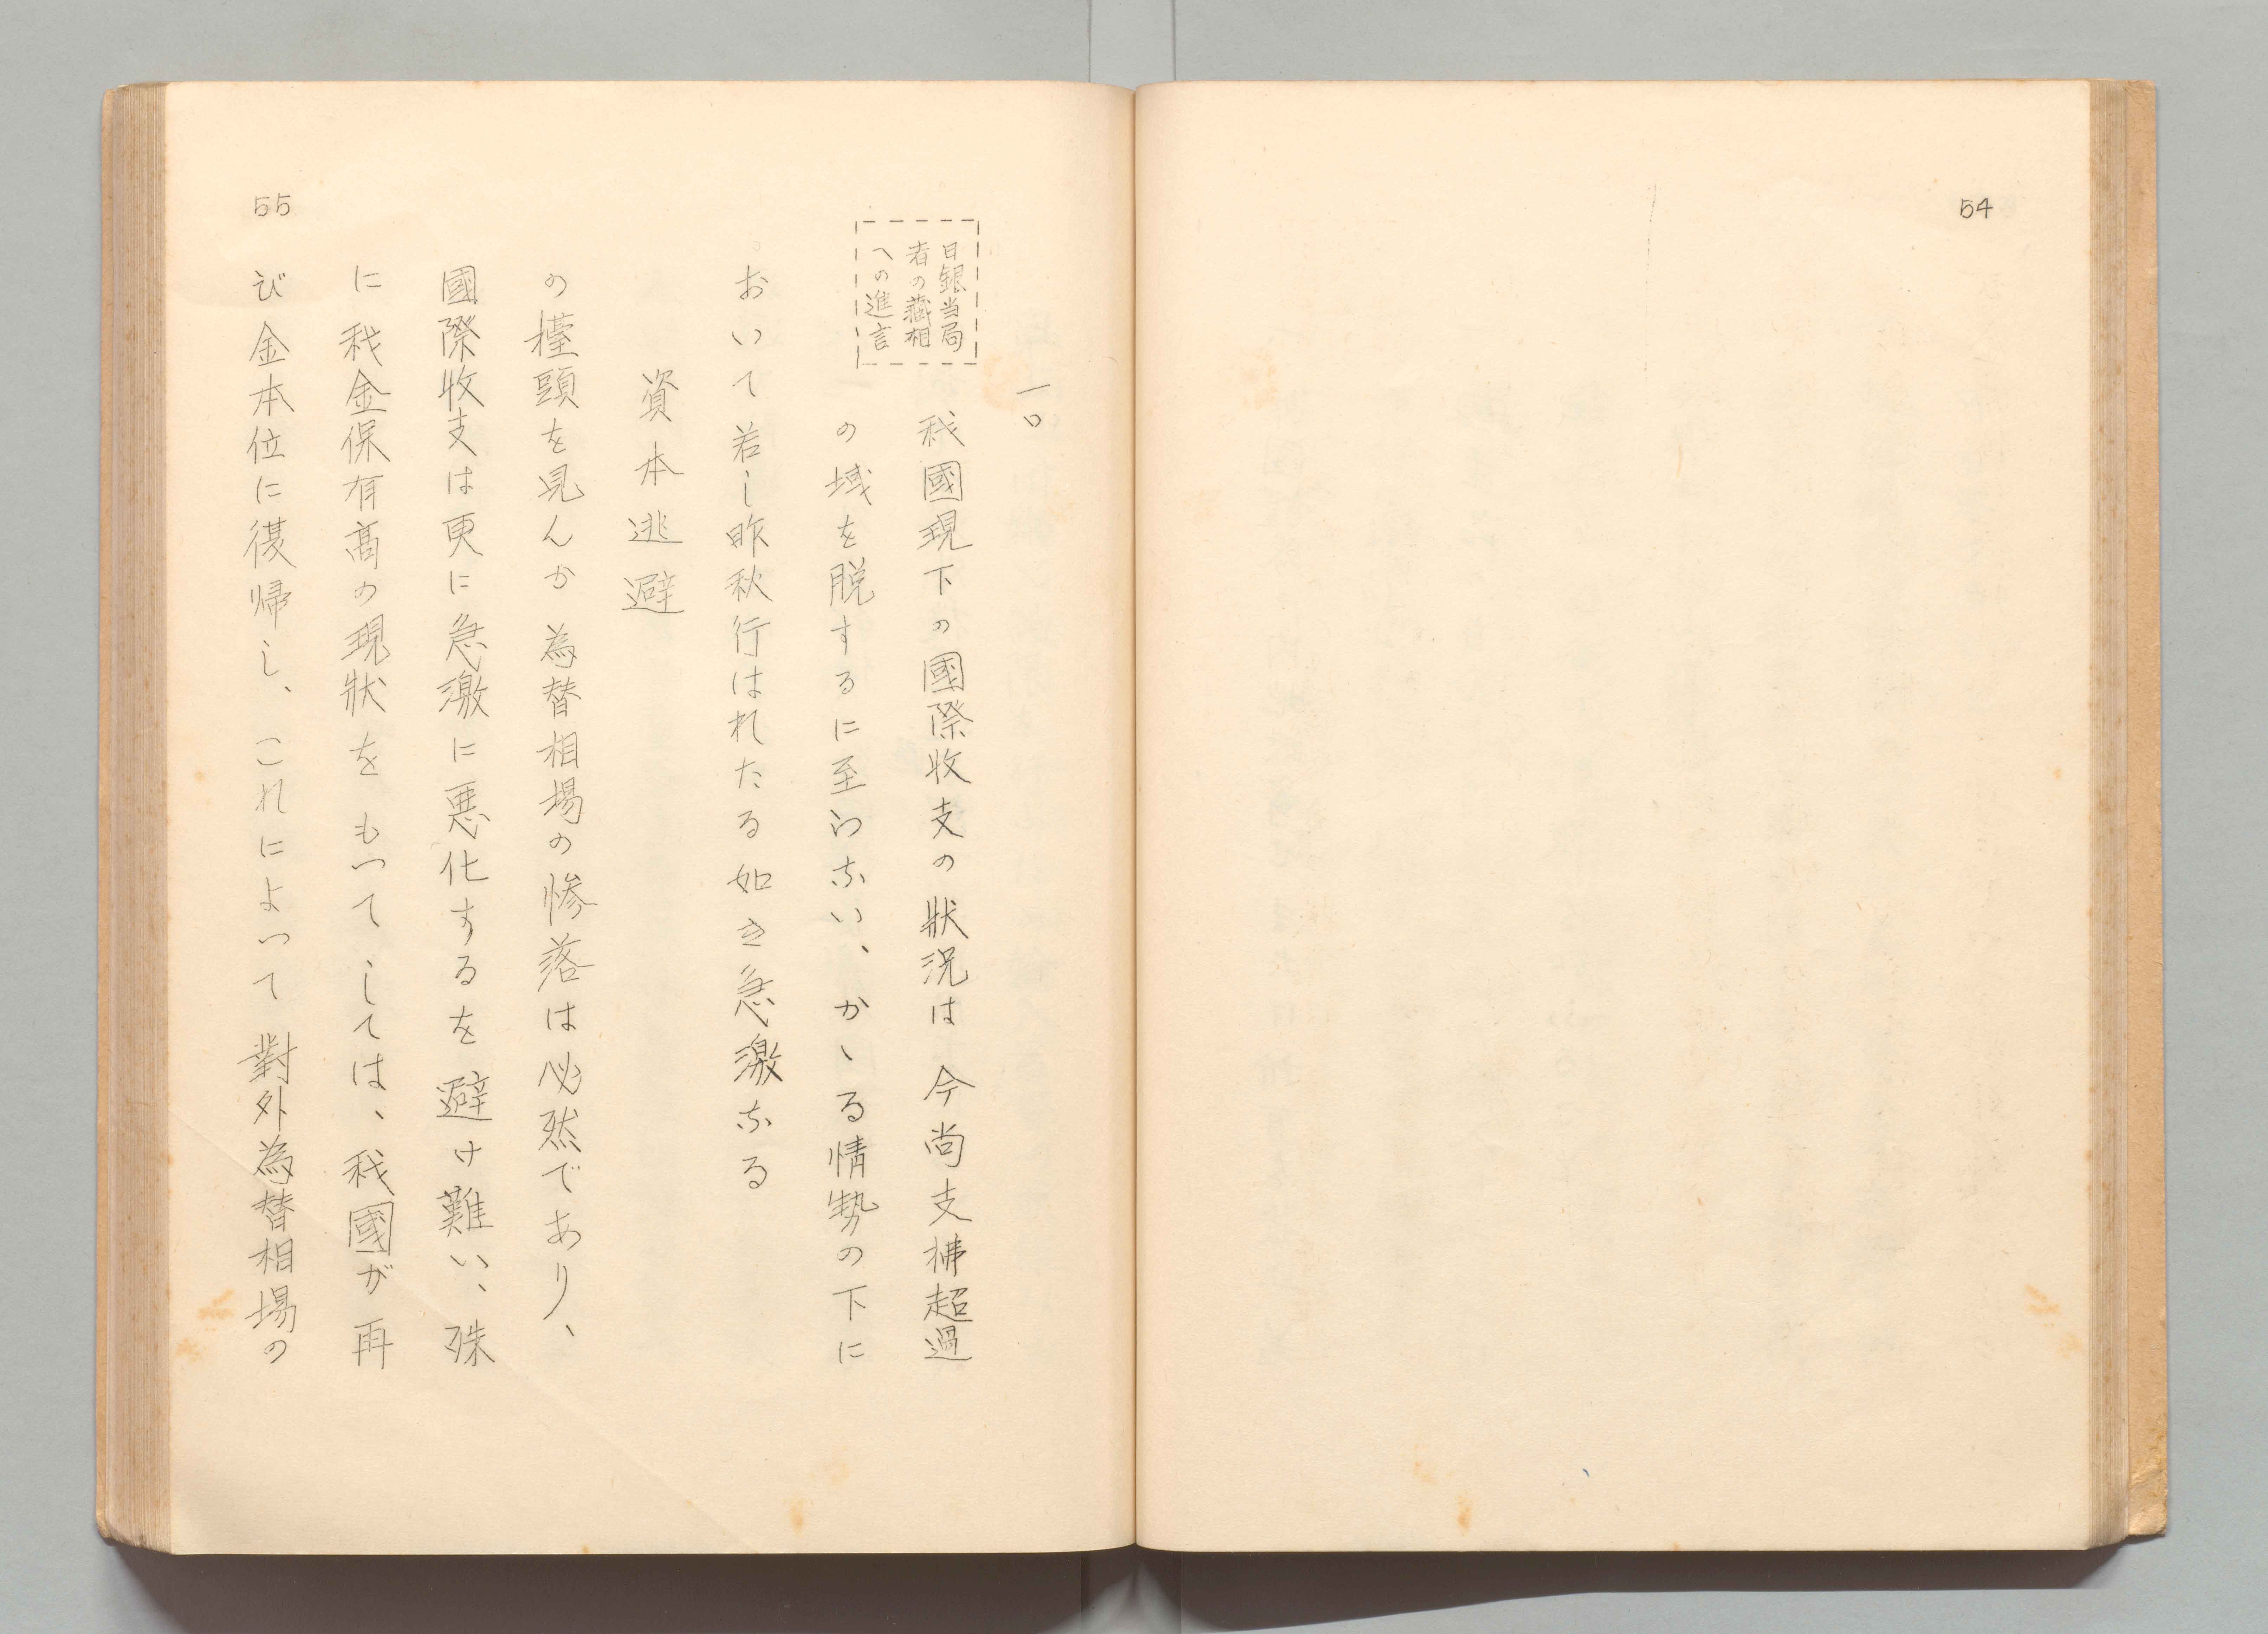 54
一〇
日銀当局
者の藏相
への進言
我國現下の國際收支の狀況は今尚支拂超過
の域を脱するに至らない、かゝる情勢の下に
おいて若し昨秋行はれたる如き急激なる
資本逃避
の擡頭を見んか為替相場の惨落は必然であり、
國際收支は更に急激に悪化するを避け難い、殊
に我金保有高の現狀をもつてしては、我國が再
び金本位に復帰し、これによつて對外為替相場の
55